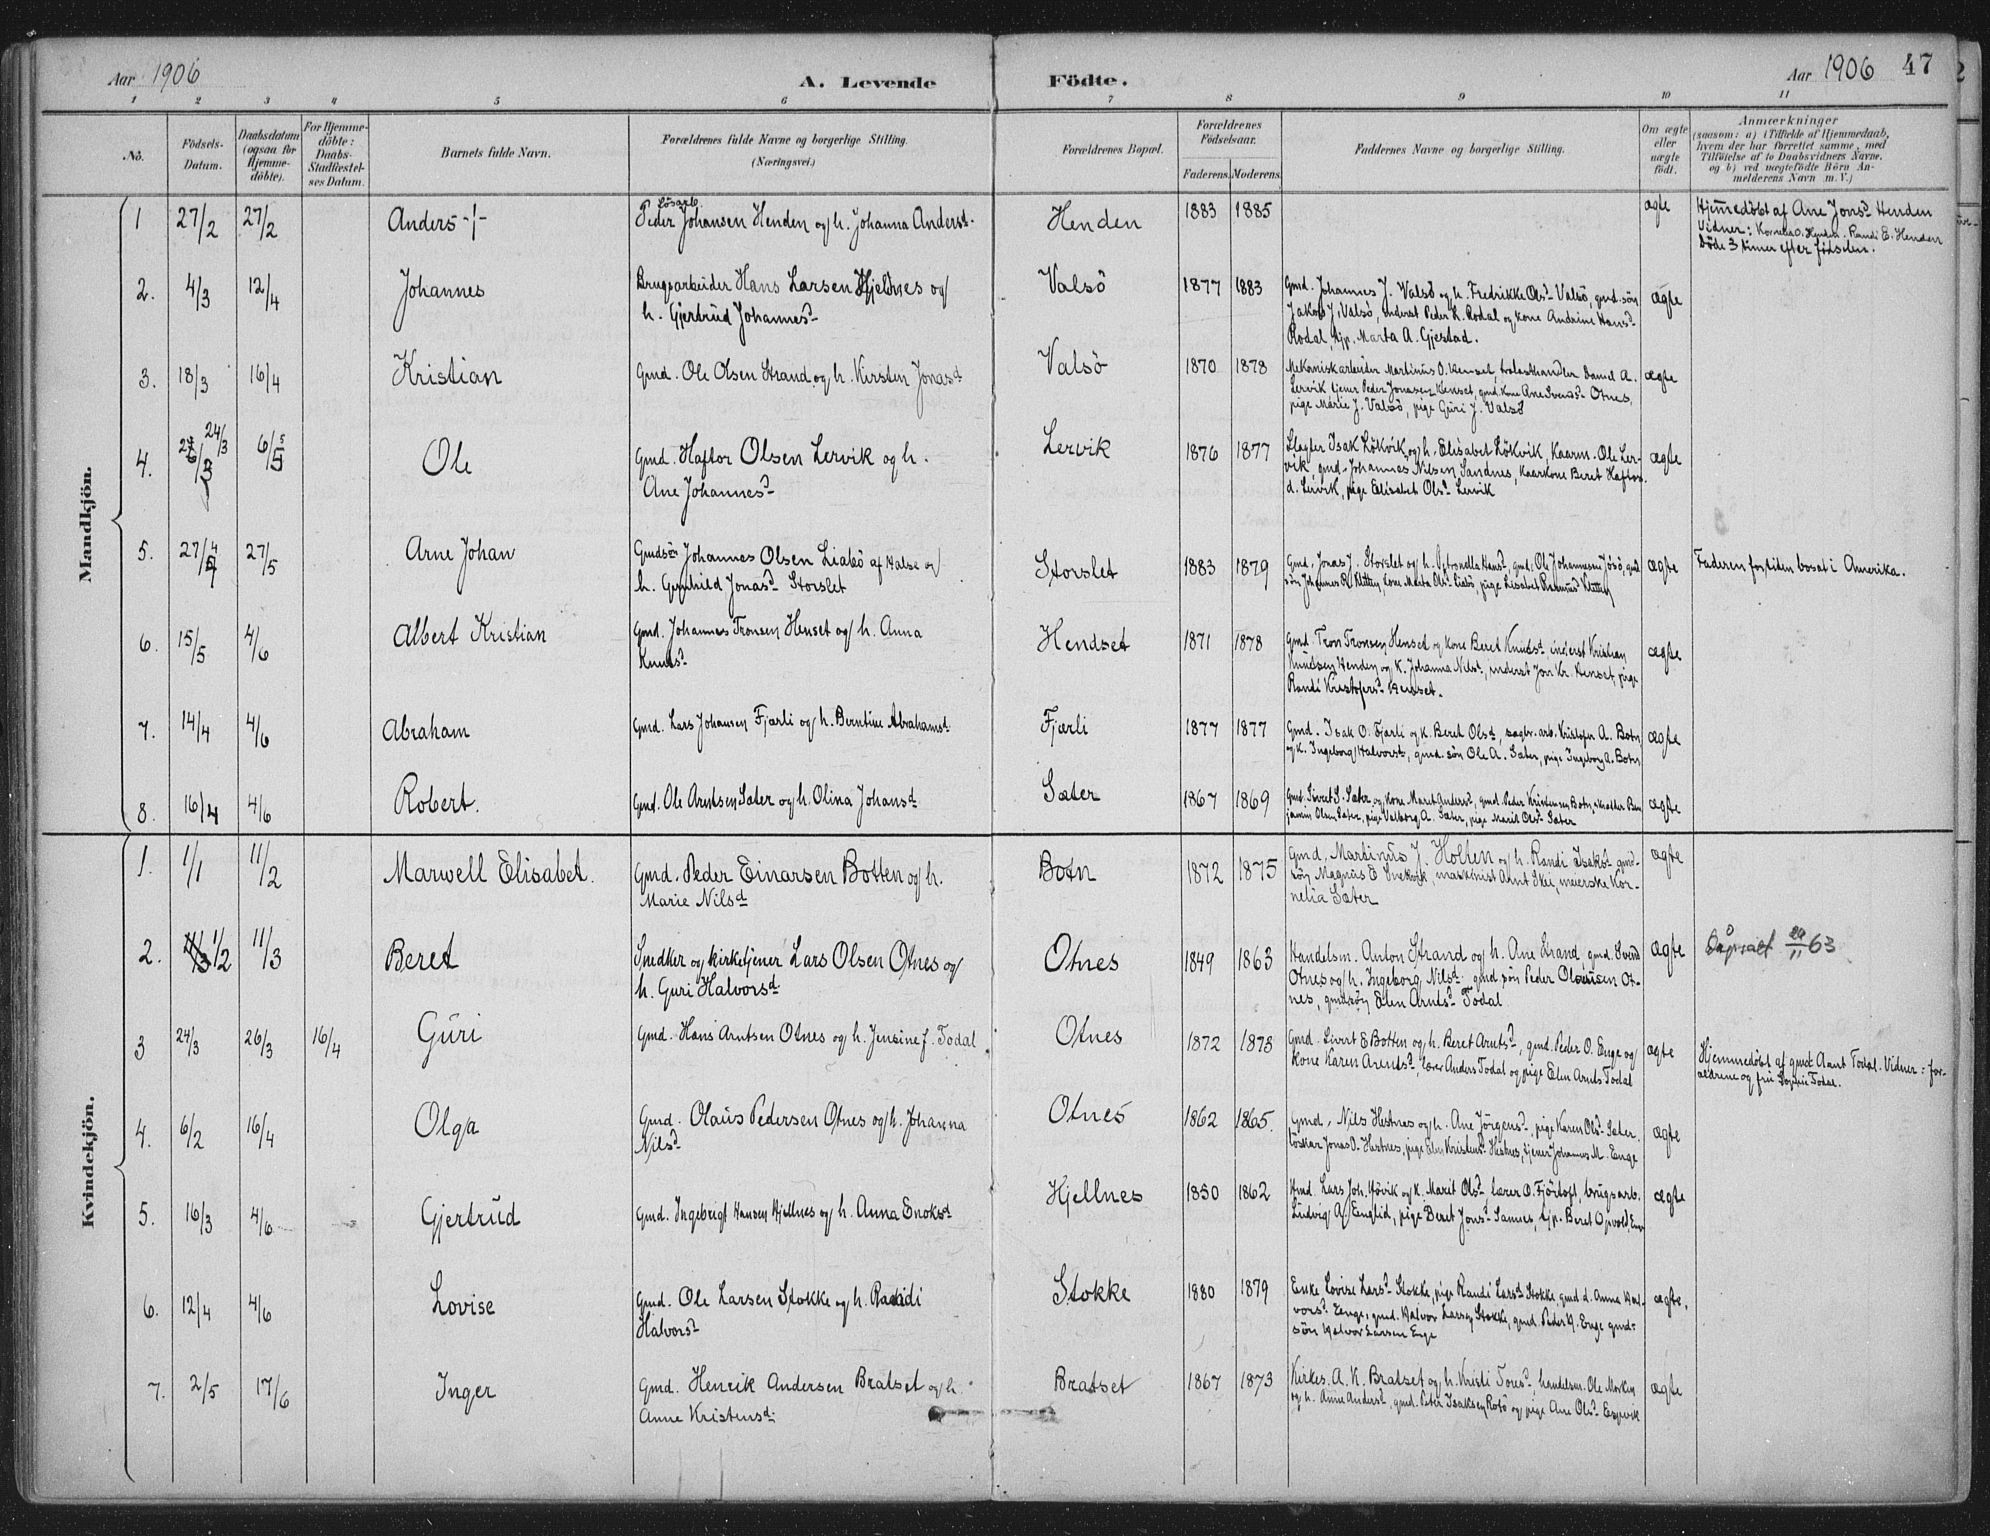 Aar 1906
A. Levende Födte.
Aar 1906 47
1 2 3 4 5 6 7 8 9 10 11
No.
Födsels-
Datum.
Daabsdatum
(ogsaa for
Hjemme-
döbte).
For Hjemme-
döbte:
Daabs-
Stadfæstel-
ses Datum.
Barnets fulde Navn.
Forældrenes fulde Navne og borgerlige Stilling.
(Næringsvei.)
Forældrenes Bopæl.
Forældrenes
Födselsaar.
Faderens. Moderens.
Faddernes Navne og borgerlige Stilling.
Om ægte
eller
uægte
födt.
Anmærkninger
(saasom: a) i Tilfælde af Hjemmedaab,
hvem der har forrettet samme, med
Tilföielse af to Daabsvidners Navne,
og b) ved uægtefödte Börn An-
melderens Navn m. V.)
Mandkjön.
1 27/2 27/2 Anders -|-
Løsarb.
Peder Johansen Henden og h. Johanna Andersd.
Henden 1883 1885 ægte
Hjemmedöbt af Ane Jonsd Henden
Vidner: Kornelia O. Henden. Randi E. Henden
Döde 3 timer efter födselen.
2. 4/3 12/4 Johannes
Brugsarbeider Hans Larsen Hjelnes og
h. Gjertrud Johannesd
Valsö 1877 1883
Gmd. Johannes J. Valsö og h. Fredrikke Olsd Valsö, gmd. sön
Jakob J. Valsö, inderst Peder K. Rodal og kone Andrine Hansd
Rodal, tjp. Marta A. Gjestad.
ægte
3. 18/3 16/4 Kristian
Gmd. Ole Olsen Strand og h. Kirsten Jonasd
Valsö 1870 1878
Mekaniskarbeider Martinus O. Henset, Daniel A.
Lervik tjener Peder Jonasen Henset, gmd. kone Ane Svendsd Otnes,
pige Marie J. Valsö, pige Guri J. Valsö
ægte
4. 24/3 6/5 Ole
Gmd. Haftor Olsen Lervik og h.
Ane Johannesd
Lervik 1876 1877
Slagter Isak Lökvik og h. Elisabet Lökvik, Kaarm. Ole Ler-
vik gmd. Johannes Nilsen Sandnes, Kaarkone Beret Haftors
d. Lervik, pige Elisabet Olsd Lervik
ægte
5. 27/4 27/5 Arne Johan
Gmdsön Johannes Olsen Liabö af Halse og
h. Jonasd Storslet
Storslet 1883 1879
Gmd. Jonas J. Storslet og h. Petronella Hansd, gmd. Ole Johannesen Jösö, gmd
sön Johannes R. Kletten, kone Marta Olsd Liabö, pige Lisabet Rasmusd Kletten
ægte
Faderen fortiden bosat i Amerika.
6. 15/5 4/6 Albert Kristian
Gmd. Johannes Tronsen Henset og h. Anna
Knutsd
Hendset 1871 1878
Gmd. Tron Tronsen Henset og kone Beret Knutsd inderst Kristian
Knudsen Henden og K. Johanna Nilsd, inderst Jon Kr. Henset, pige
Randi Kristofersd Henset.
ægte
7. 14/4 4/6 Abraham
Gmd. Lars Johansen Fjærli og h. Berntine Abrahamsd
Fjærli 1877 1877
Gmd. Isak O. Fjærli og K. Beret Olsd, sagbr. arb. Kristofer A. Botn
og K. Ingeborg Halvorsd, gmd. sön Ole A. Sæter, pige Ingeborg A. Botn
ægte
8. 16/4 4/6 Robert.
Gmd. Ole Arntsen Sæter og h. Olina Johansd.
Sæter 1867 1869
Gmd. Sivert S. Sæter og kone Maret Andersd, gmd. Peder Kristensen Botn, Ben
jamin Olsen Sæter, pige Valborg A. Sæter, pige Marit Olsd Sæter
ægte
Kvindekjön.
1. 1/1 11/2 Marwell Elisabet.
Gmd. Peder Einarsen Botten og h.
Marie Nilsd
Botn 1872 1875
Gmd. Martinus J. Holten og h. Randi Isaksd gmd-
sön Magnus E Snekvik, maskinist Arnt Skei, meierske Kor-
nelia Sæter
ægte
2. 1/2 11/3 Beret
Snedker og kirketjener Lars Olsen Otnes og
h. Guri Halvorsd.
Otnes 1849 1863
Handelsm. Anton Strand og h. Ane Strand, gmd. Svend
Otnes og h. Ingeborg Nilsd. gmd. sön Peder Olausen Ot-
nes, gmdsön Elen Arntsd Todal
ægte
Dåpsatt 29/11 63
3 24/3 26/3 16/4 Guri
Gmd. Hans Arntsen Otnes og h. Jensine f. Todal
Otnes 1872 1873
Gmd. Sivert E Botten og h. Beret Arntsd, gmd. Peder O. Enge og
kone Karen Arentsd, lærer Anders Todal og pige Elen Arnts Todal
ægte
Hjemmedöbt af gmd. Arnt Todal. Vidner: for-
ældrene og fru Sophie Todal.
4. 6/2 16/4 Olga
Gmd. Olaus Pedersen Otnes og h. Johanna
Nilsd
Otnes 1862 1865.
Gmd. Nils Hestnes og h. Ane Jörgensd, pige Karen Olsd Sæter.
löskar Jonas O. Hestnes, pige Elen Kristensd Hestnes, tjener Johannes M. Enge
ægte
5. 16/3 4/6 Gjertrud
Gmd. Ingebrigt Hansen Hjellnes og h. Anna Enoksd
Hjellnes 1850 1862
Hmd. Lars Joh. Hövik og K. Marit Olsd, lærer O. Fjörtoft, brugsarb.
Ludvig A. Englid, pige Beret Jonsd Sannes, tjp. Beret Opvold, Enge
ægte
6. 12/4 4/6 Lovise
Gmd. Ole Larsen Stokke og h. Randi
Halvorsd
Stokke 1880 1879
Enke Lovise Larsd Stokke, pige Randi Larsd Stokke, gmd. d. Anne Hal-
vorsd Enge, gmd. Halvor Larsen Stokke, gmd. Peder H. Enge gmd-
sön Halvor Larsen Enge
ægte.
7. 2/5 17/6 Inger
Gmd. Henrik Andersen Bratset og h.
Anne Kristensd.
Bratset 1867 1873
Kirkes. A. K. Bratset og h. Kristi Toresd, handelsm. Ole Morken
og h. Anne Andersd, gmd. Peter Isaksen Rotö og pige Ane Olsd Espevik
ægte